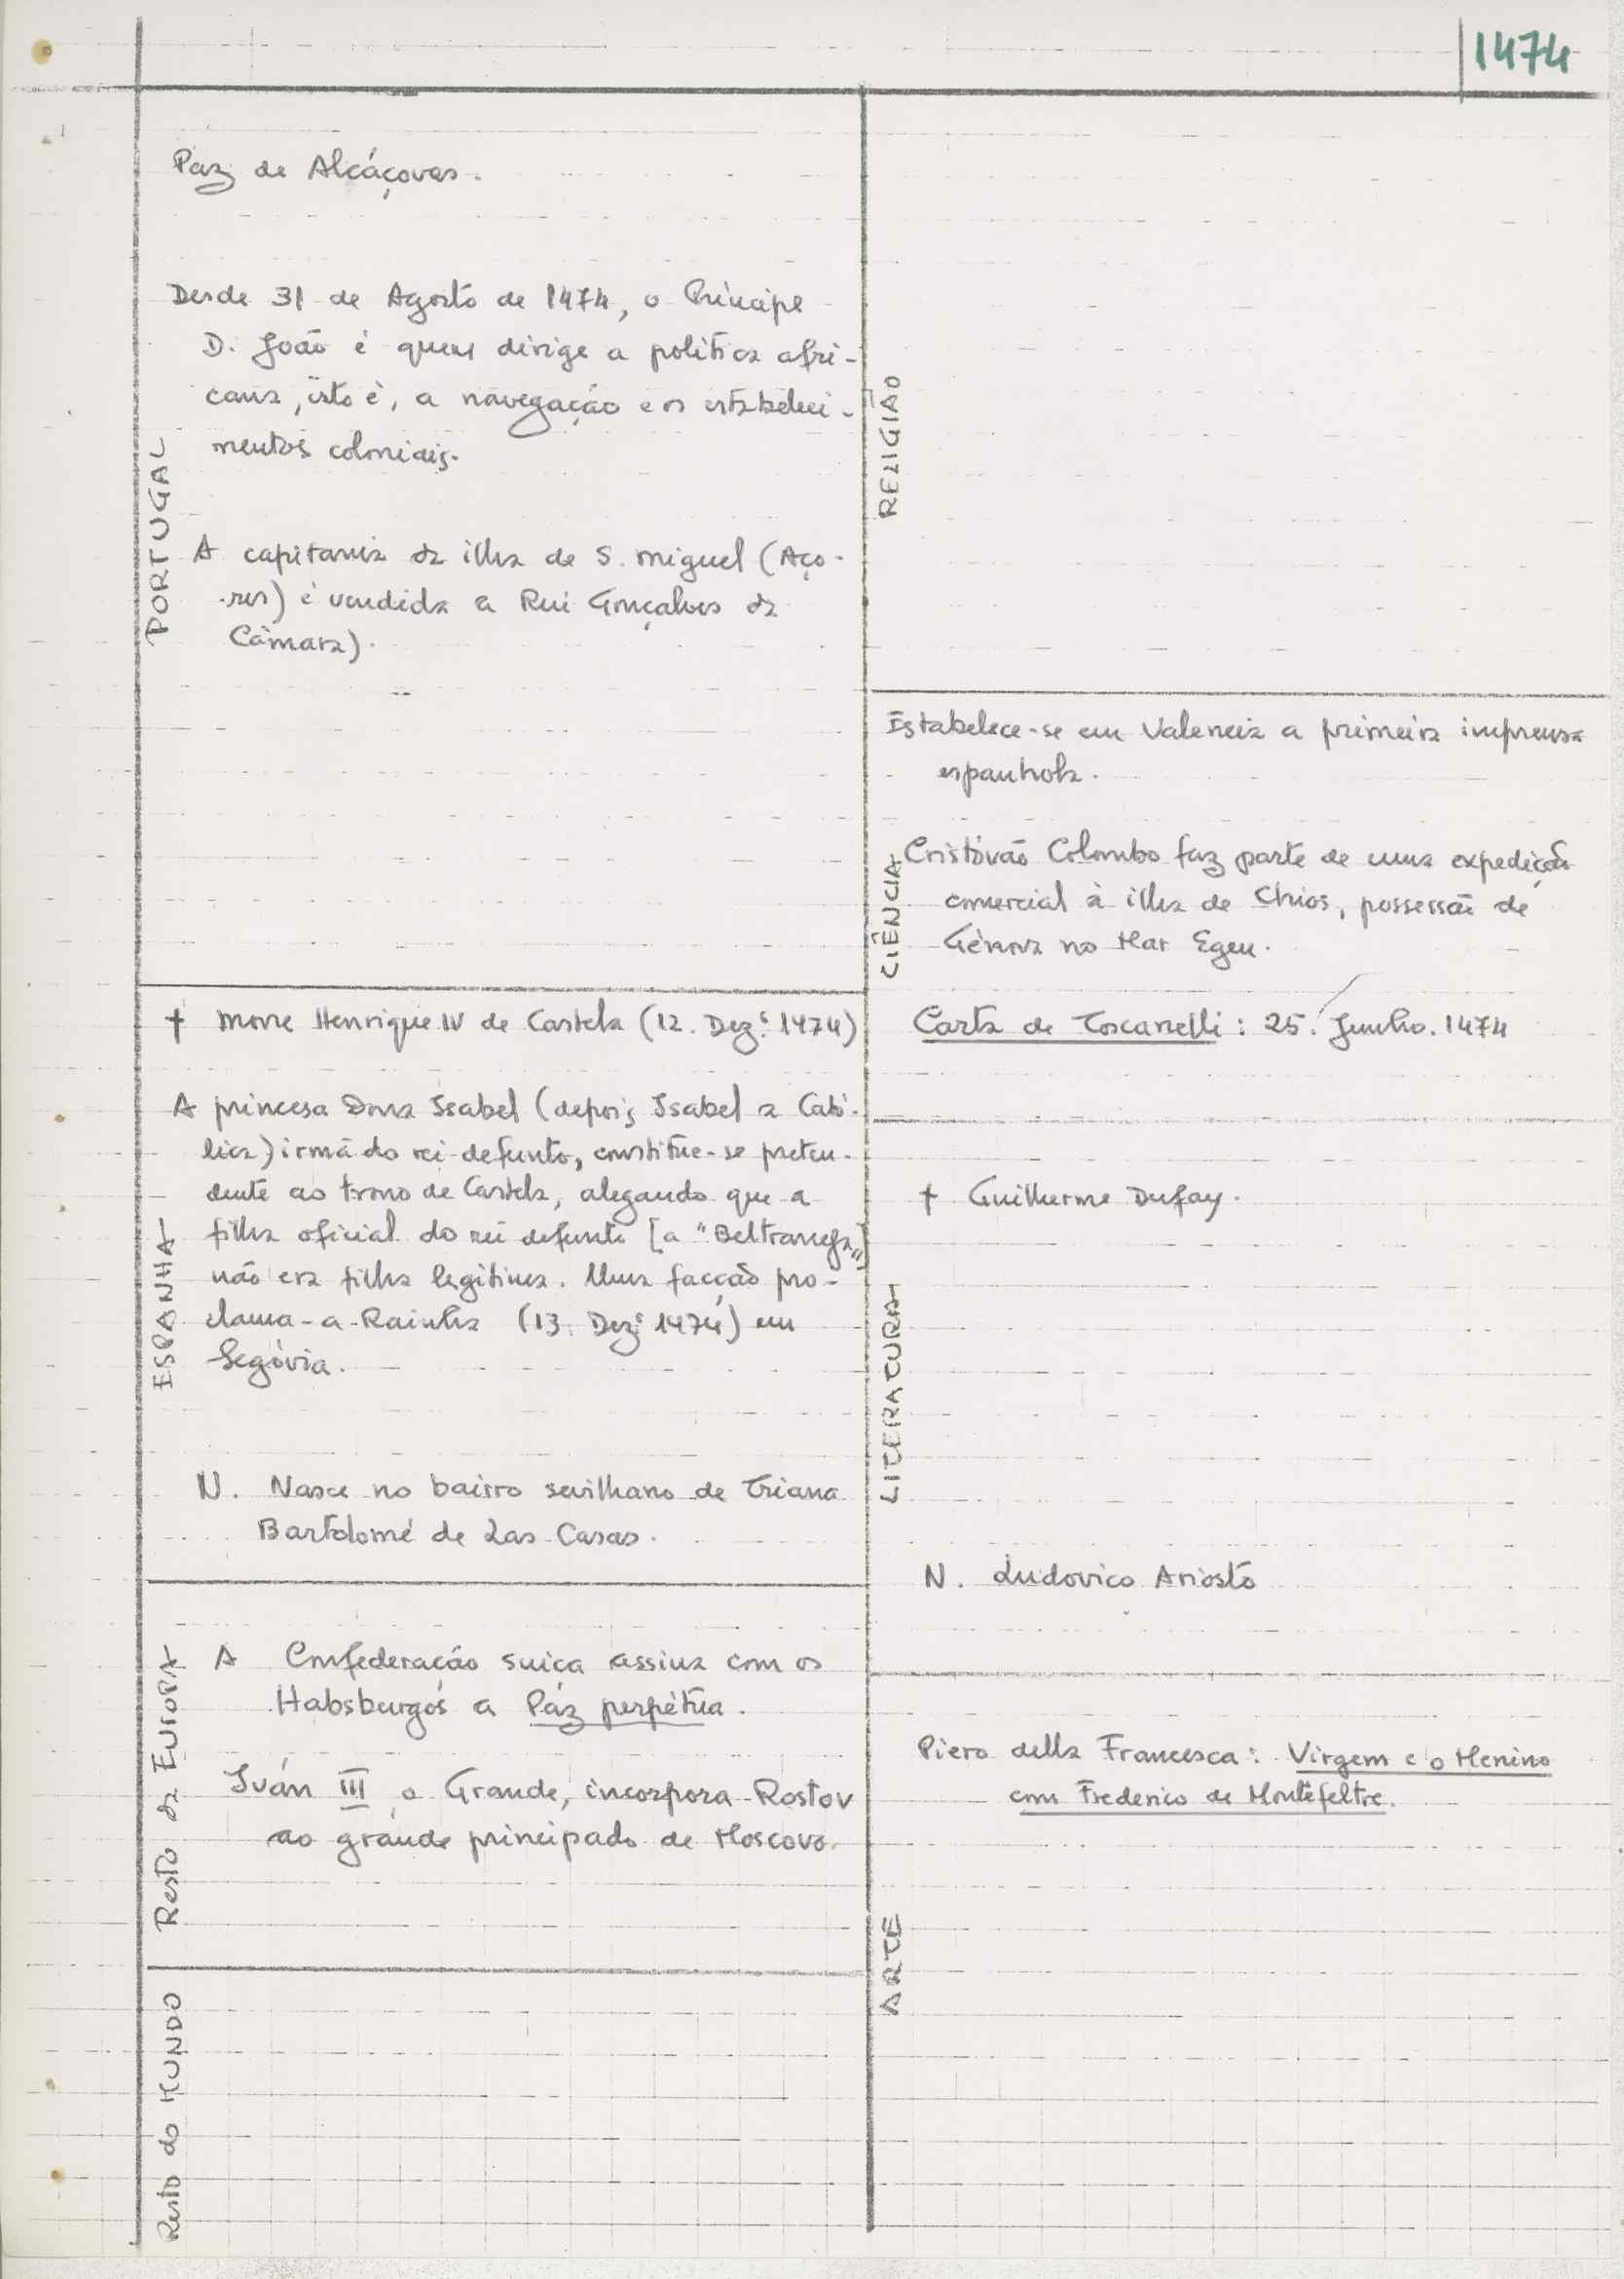 1474
PORTUGAL
Paz de Alcáçovas.
Desde 31 de Agosto de 1474, o Príncipe
D. João é quem dirige a política afri-
cana, isto é, a navegação e os estabeleci-
mentos coloniais.
A capitania da ilha de S. Miguel (Aço-
res) é vendida a Rui Gonçalves da
Câmara).
ESPANHA
† Morre Henrique IV de Castela (12. Dez.º 1474)
A princesa Dona Isabel (depois Isabel a Cató-
lica) irmã do rei defunto, constitue-se preten-
dente ao trono de Castela, alegando que a
filha oficial do rei defunto [a "Beltraneja"]
não era filha legítima. Uma facção pro-
clama-a Rainha (13. Dezº 1474) em
Segóvia.
N. Nasce no bairro sevilhano de Triana
Bartolomé de Las Casas.
Resto da EUROPA
A Confederação suiça assina com os
Habsburgos a Paz perpétua.
Iván III, o Grande, incorpora Rostov
ao grande principado de Moscovo.
Resto do MUNDO
RELIGIÃO
CIÊNCIA
Estabelece-se em Valencia a primeira imprensa
espanhola.
Cristóvão Colombo faz parte de uma expedição
comercial à ilha de Chios, possessão de
Génova no Mar Egeu.
Carta de Toscanelli: 25. Junho. 1474
LITERATURA
† Guilherme Dufay.
N. Ludovico Ariosto
ARTE
Piero della Francesca: Virgem e o Menino
com Frederico de Montefeltre.